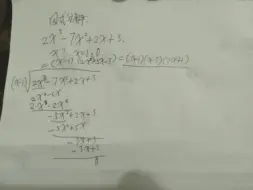 因式分解:
2x³-7x²+2x+3.
=(x-1)(2x²-5x-3)=(x-1)(x-3)(2x+1)
(x-1) 2x³-7x²+2x+3
2x³-2x²
-5x²+2x+3
-5x²+5x
-3x+3
-3x+3
0